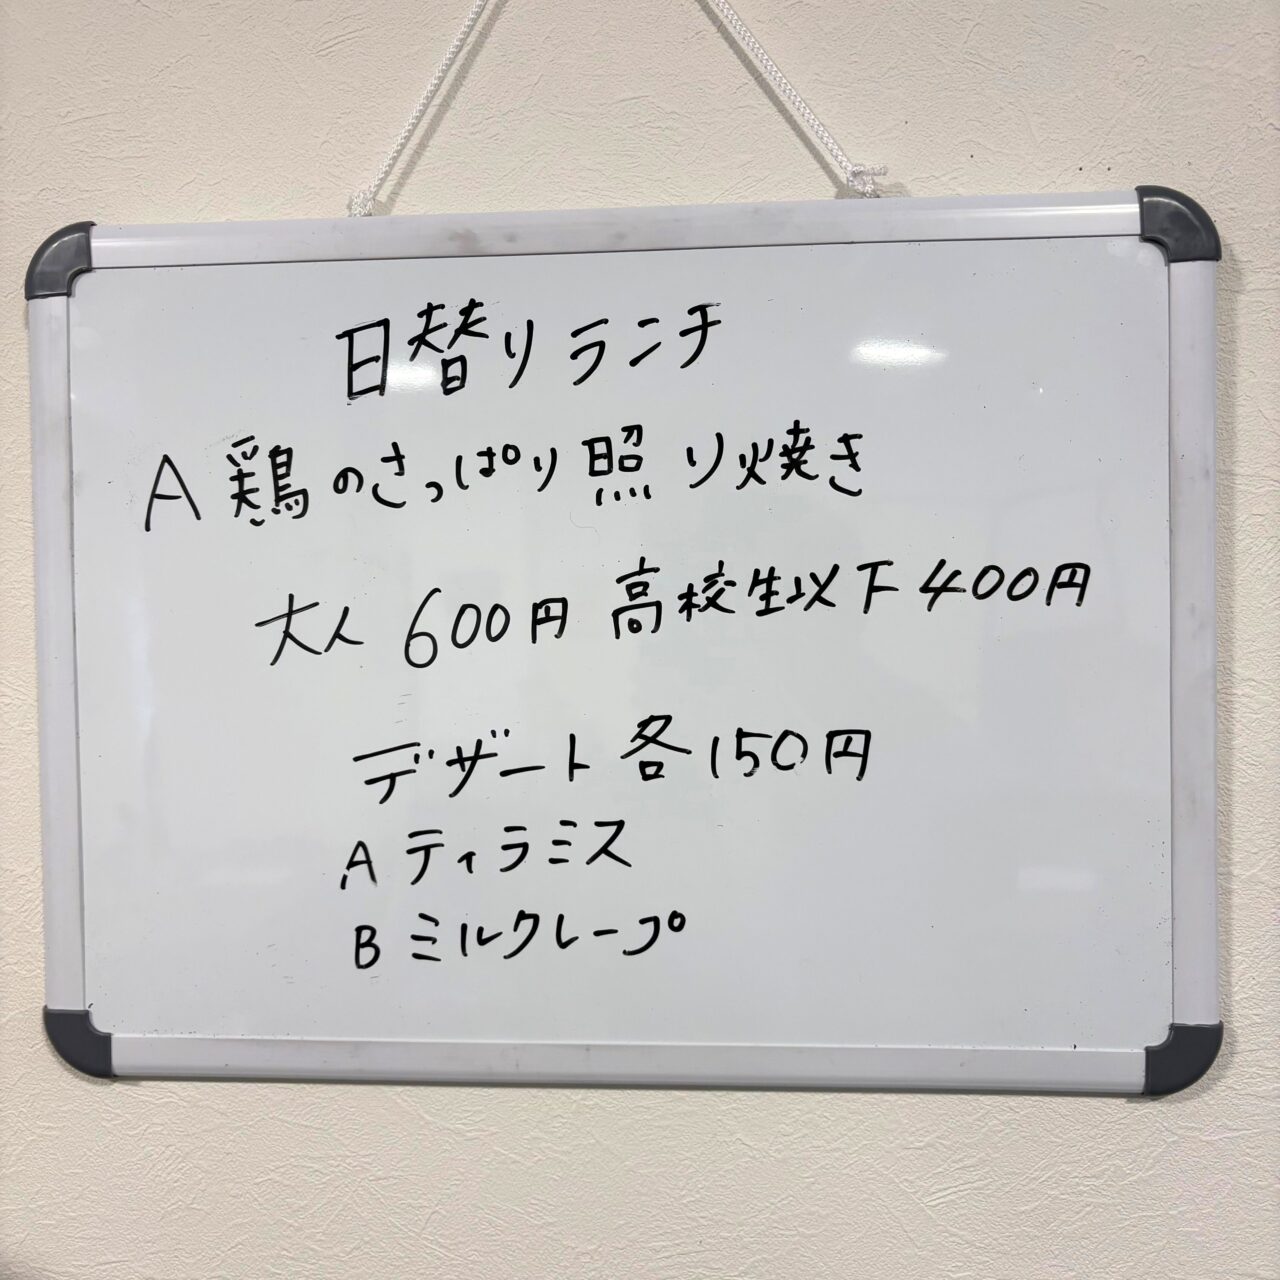 日替りランチ
A 鶏のさっぱり照り焼き
大人 600円 高校生以下 400円
デザート 各150円
A ティラミス
B ミルクレープ